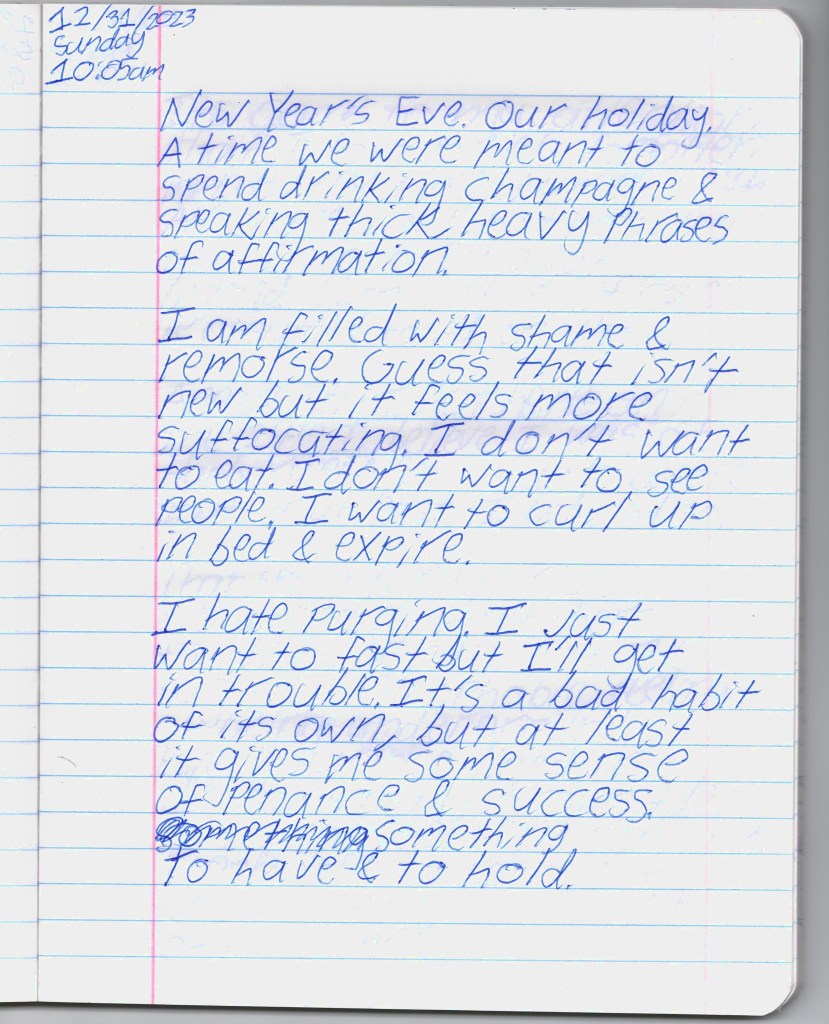 12/31/2023
Sunday
10:05am
New Year's Eve. Our holiday.
A time we were meant to
spend drinking champagne &
speaking thick, heavy phrases
of affirmation.
I am filled with shame &
remorse. Guess that isn't
new but it feels more
suffocating. I don't want
to eat. I don't want to see
people. I want to curl up
in bed & expire.
I hate purging. I just
want to fast but I'll get
in trouble. It's a bad habit
of its own, but at least
it gives me some sense
of penance & success.
something something
to have & to hold.